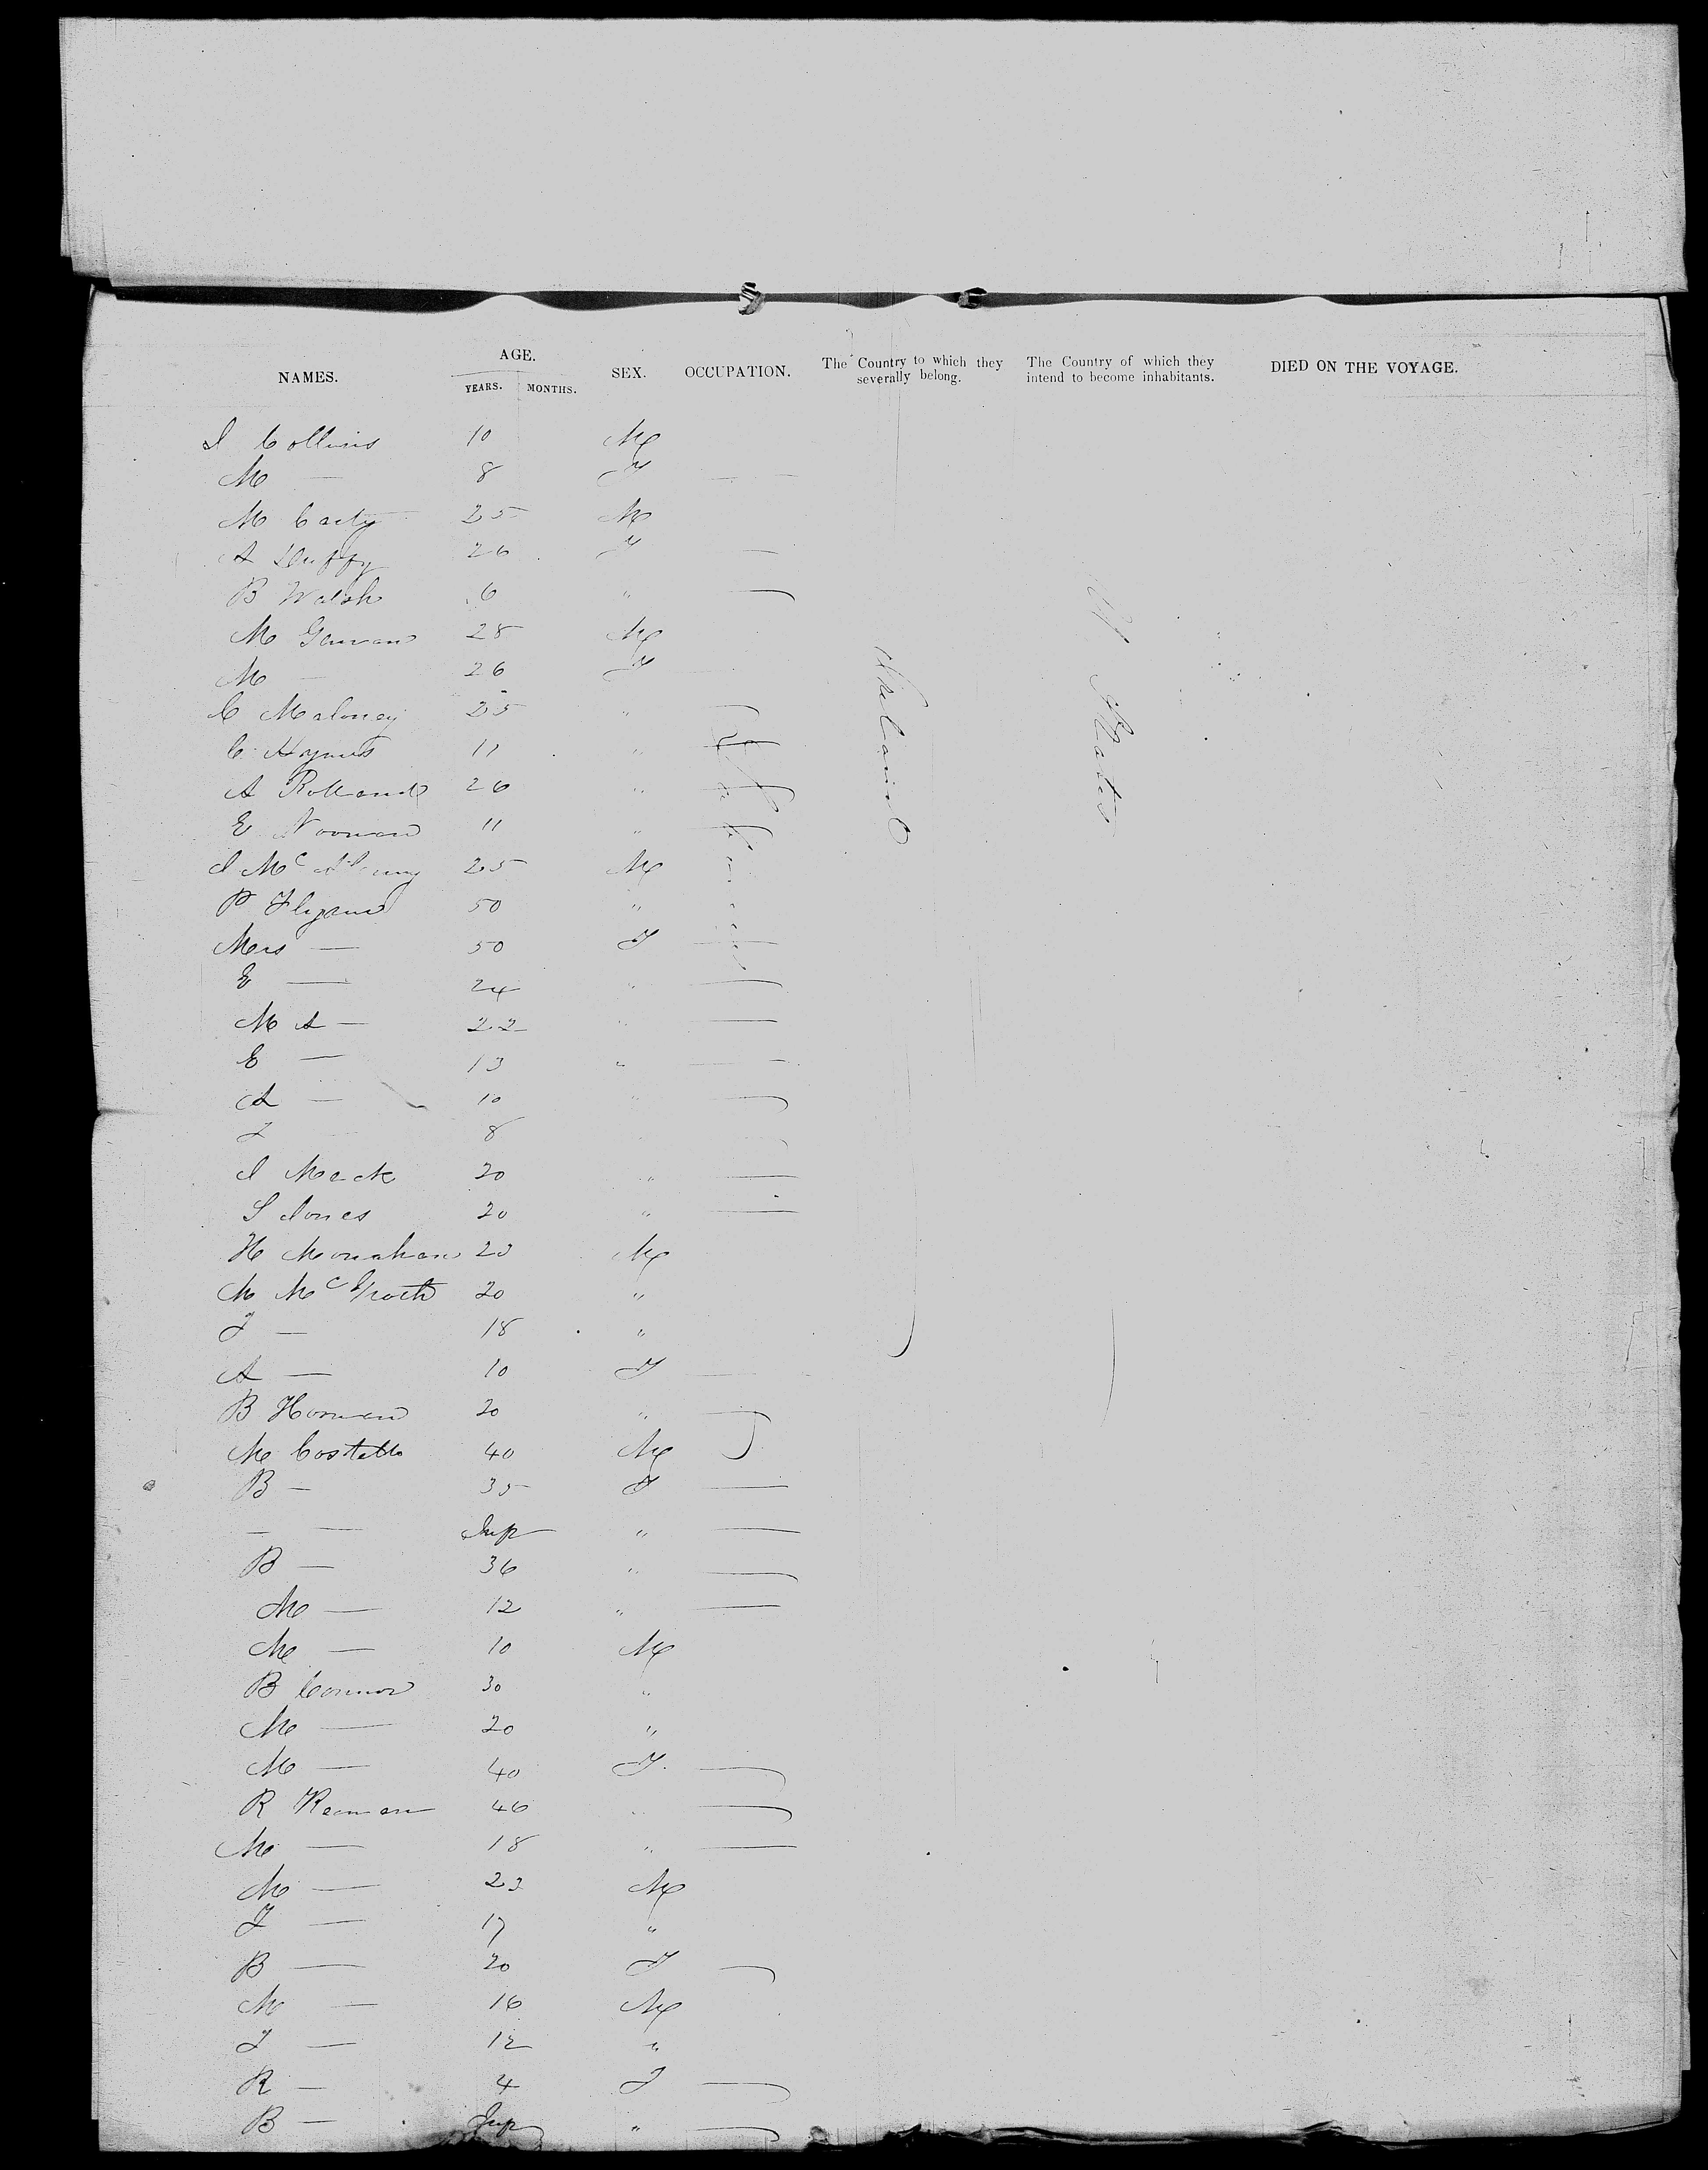 NAMES. AGE. YEARS. MONTHS. SEX. OCCUPATION. The Country to which they severally belong. The Country of which they intend to become inhabitants. DIED ON THE VOYAGE.
J Collins 10 M
M — 8 F —
M Carty 25 M
A Duffy 26 F —
B Walsh 6 " —
M Gawan 28 M
M — 26 F
C Maloney 25 " —
C Hynes 11 " —
A Rolland 26 " —
E Noonan 11 " —
J Mc 25 M
P Flynn 50 "
Mrs — 50 F —
E — 24 " —
M A — 22 " —
E — 13 " —
A — 10 " —
J 8
J Mack 20 " —
S Jones 20 " —
H Monahan 23 M
M McGrath 20 "
J — 18 "
A — 10 F —
B Honan 20 " —
M Costello 40 M
B — 35 F —
— — Inf " —
B — 36 " —
M — 12 " —
M — 10 M
B Connor 30 "
M — 20 "
M — 40 F —
R Keenan 46 " —
M — 18 " —
M — 23 M
J — 17 "
B — 20 F —
M — 16 M
J — 12 "
R — 4 F —
B — Inf " —
Ireland
U States